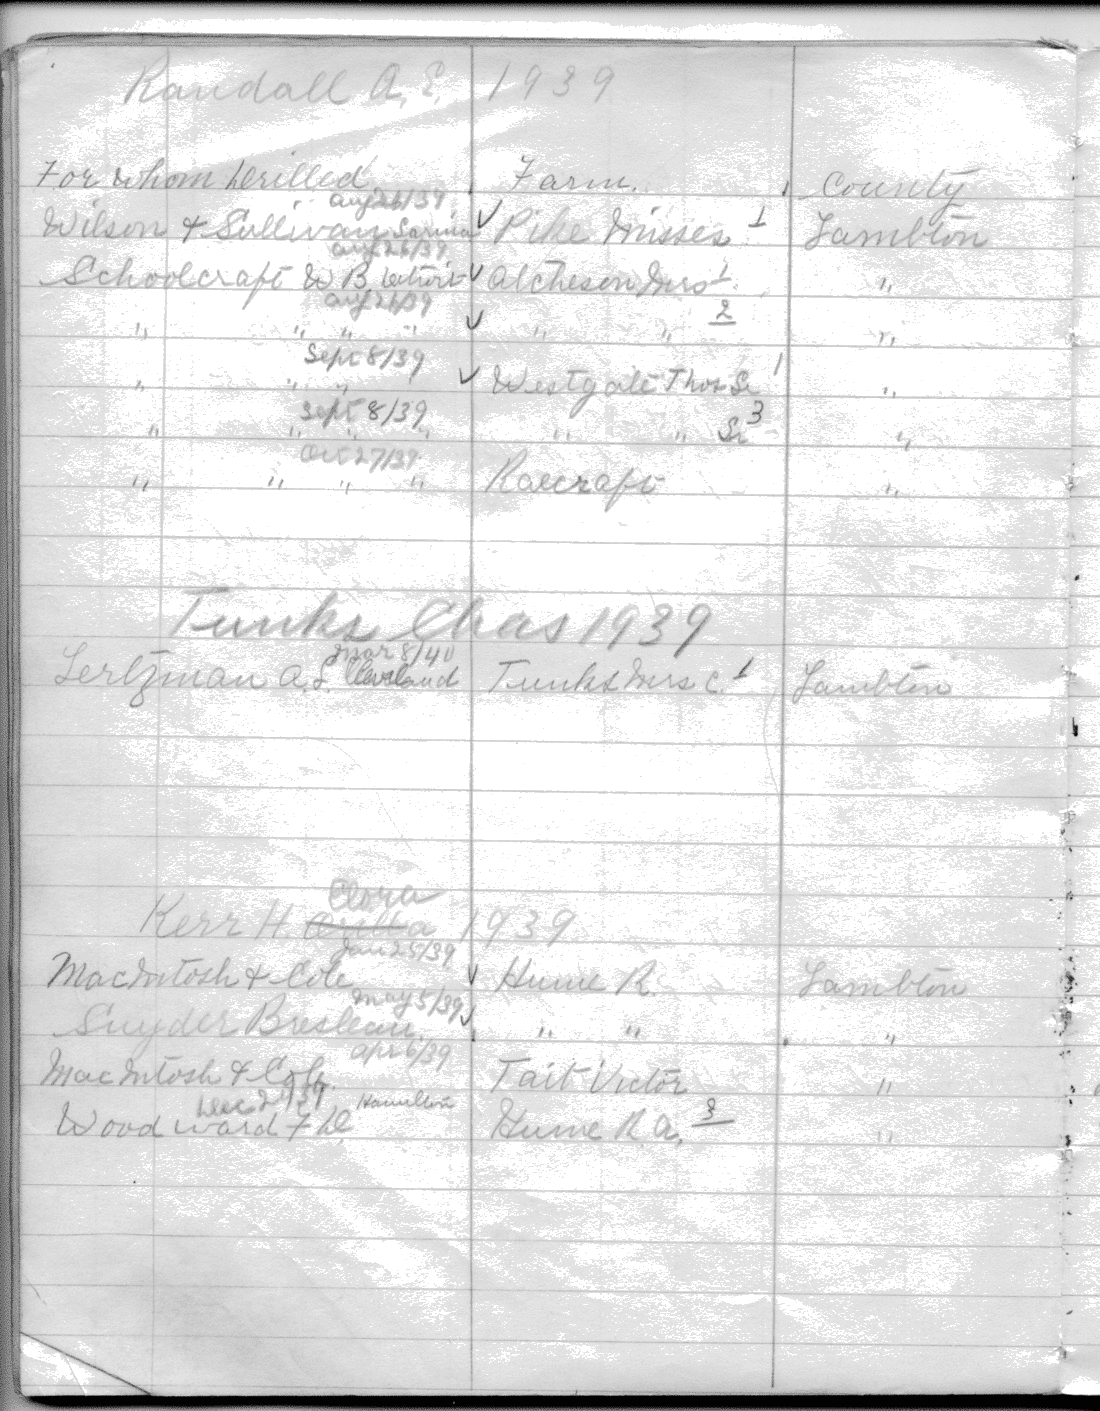 Randall A. E. 1939
For whom Drilled Farm. County
Aug 26/39
Wilson & Sullivan Sarnia ✓ Pike Misses 1 Lambton
Aug 26/39
Schoolcraft W B. Detroit ✓ Atcheson Mrs 1 "
Aug 26/39
" " " " ✓ " " 2 "
Sept 8/39
" " " ✓ Westgate Thos Sr 1 "
Sept 8/39
" " " " " " Sr 3 "
Oct 27/39
" " " " Raecraft "
Tunks Chas 1939
Mar 8/40
Lertzman A. L. Cleveland Tunks Mrs C. 1 Lambton
Clora
Kerr H. 1939
Jan 25/39
MacIntosh & Cole ✓ Hume R. Lambton
May 5/39
Snyder Breslau ✓ " " "
Apr 6/39
MacIntosh & Cole. Tait Victor "
Dec 2/39 Hamilton
Woodward F D. Hume R A. 3 "